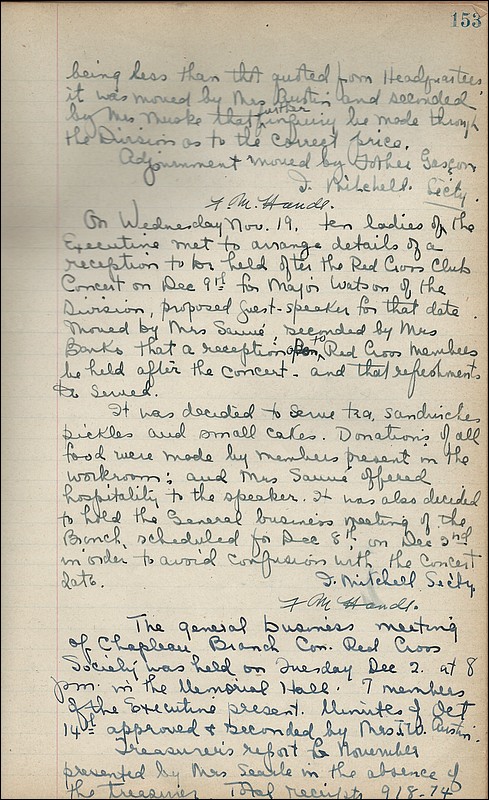 153
being less than that quoted from Headquarters
it was moved by Mrs Bustin and seconded
by Mrs Muske that further inquiry be made through
the Division as to the correct price.
Adjournment moved by Father Gascon
J. Mitchell. Secty.
F M. Hands.
On Wednesday Nov. 19, ten ladies of the
Executive met to arrange details of a
reception to be held after the Red Cross Club
Concert on Dec 9th for Major Watson of the
Division, proposed guest-speaker for that date.
Moved by Mrs Sauvé seconded by Mrs
Banks that a reception to Red Cross members
be held after the concert - and that refreshments
be served.
It was decided to serve tea, sandwiches
pickles and small cakes. Donations of all
food were made by members present in the
workroom; and Mrs Sauvé offered
hospitality to the speaker. It was also decided
to hold the General business meeting of the
Branch, scheduled for Dec 8th, on Dec 2nd
in order to avoid confusion with the concert
date.
J. Mitchell Secty.
F M Hands.
The general business meeting
of Chapleau Branch Can. Red Cross
Society was held on Tuesday Dec 2. at 8
pm. in the Memorial Hall. 7 members
of the Executive present. Minutes of Oct
14th approved & seconded by Mrs J.W. Austin.
Treasurer's report for November
presented by Mrs Searle in the absence of
the treasurer. Total receipts 918.74